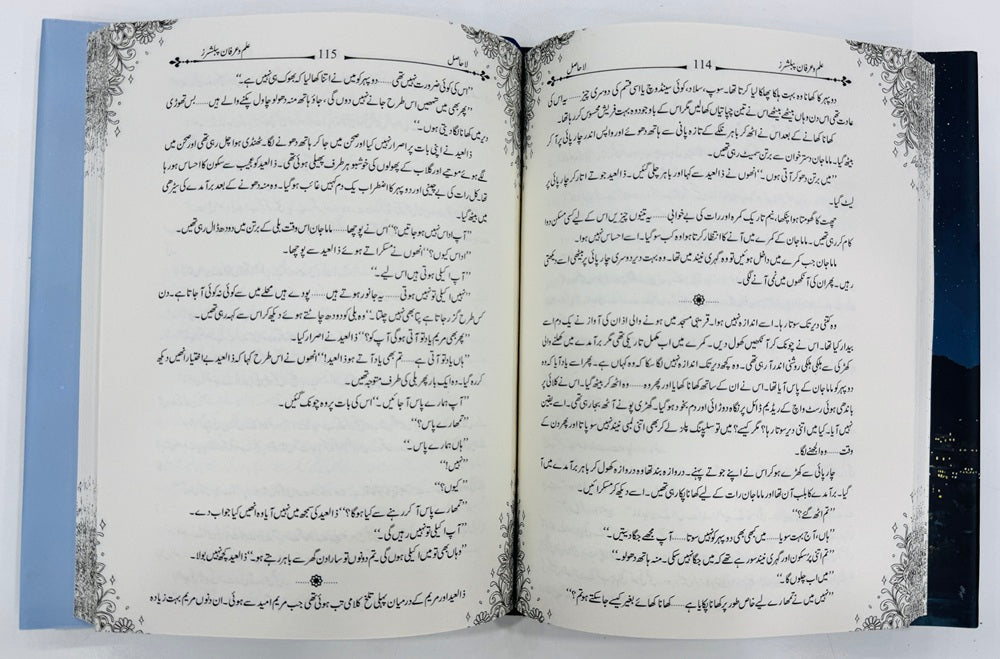 علم و عرفان پبلشرز 114 لاحاصل
دوپہر کا کھانا وہ بہت ہلکا پھلکا لیا کرتا تھا۔ سوپ، سلاد، کوئی سینڈوچ یا اسی قسم کی دوسری چیز ...... یہ اس کی
عادت تھی اس دن وہاں بیٹھے بیٹھے اس نے تین چپاتیاں کھا لیں مگر اس کے باوجود وہ بہت فریش محسوس کر رہا تھا۔
کھانا کھانے کے بعد اس نے اٹھ کر باہر نلکے کے تازہ پانی سے ہاتھ دھوئے اور واپس اندر چارپائی پر آکر
بیٹھ گیا۔ ماما جان دسترخوان سے برتن سمیٹ رہی تھیں۔
’’میں برتن دھو کر آتی ہوں۔‘‘ انھوں نے ذالعید سے کہا اور باہر چلی گئیں۔ ذالعید جوتے اتار کر چارپائی پر
لیٹ گیا۔
چھت کا گھومتا ہوا پنکھا، نیم تاریک کمرہ اور رات کی بے خوابی ...... یہ تینوں چیزیں اس کے لیے کسی مسکن دوا کا
کام کر رہی تھیں۔ ماما جان کے کمرے میں آنے کا انتظار کرتا ہوا وہ کب سو گیا۔ اسے احساس نہیں ہوا۔
ماما جان جب کمرے میں داخل ہوئیں تو وہ گہری نیند میں تھا۔ وہ بہت دیر دوسری چارپائی پر بیٹھی اسے دیکھتی
رہیں۔ پھر ان کی آنکھوں میں نمی آنے لگی۔
وہ کتنی دیر تک سوتا رہا۔ اسے اندازہ نہیں ہوا۔ قریبی مسجد میں ہونے والی اذان کی آواز نے یک دم اسے
بیدار کیا تھا۔ اس نے چونک کر آنکھیں کھول دیں۔ کمرے میں اب مکمل تاریکی تھی مگر برآمدے میں کھلنے والی
کھڑکی سے ہلکی ہلکی روشنی اندر آرہی تھی۔ وہ کچھ دیر تک اندازہ نہیں لگا سکا کہ وہ کہاں ہے۔ پھر اسے یاد آیا کہ وہ
دوپہر کو ماما جان کے پاس آیا تھا۔ اس نے ان کے ساتھ کھانا کھایا اور پھر وہ ...... وہ اٹھ کر بیٹھ گیا۔ اس نے کلائی پر
باندھی ہوئی رسٹ واچ کے ریڈیم ڈائل پر نگاہ دوڑائی اور دم بخود ہو گیا۔ گھڑی پونے آٹھ بجا رہی تھی۔ اسے یقین
نہیں آیا۔ کیا میں اتنی دیر سوتا رہا؟ مگر کیسے؟ میں تو سلیپنگ پلز لے کر بھی اتنی لمبی نیند نہیں سو پاتا اور پھر دن کے
وقت ...... وہ الجھنے لگا۔
چارپائی سے کھڑے ہو کر اس نے اپنے جوتے پہنے۔ دروازہ بند تھا وہ دروازہ کھول کر باہر برآمدے میں آ
گیا۔ برآمدے کا بلب آن تھا اور ماما جان رات کے لیے کھانا پکا رہی تھیں۔ اسے دیکھ کر مسکرائیں۔
’’تم اٹھ گئے؟‘‘
’’ہاں، آج بہت سویا ...... میں کبھی بھی دوپہر کو نہیں سوتا ...... آپ مجھے جگا دیتیں۔‘‘
’’تم اتنی پرسکون اور گہری نیند سو رہے تھے کہ میں جگا نہیں سکی۔ منہ ہاتھ دھو لو۔‘‘
’’میں اب چلوں گا۔‘‘
’’نہیں میں نے تمھارے لیے خاص طور پر کھانا پکایا ہے ...... کھانا کھائے بغیر کیسے جا سکتے ہو تم؟‘‘
علم و عرفان پبلشرز 115 لاحاصل
’’اس کی کوئی ضرورت نہیں تھی ...... دوپہر کو میں نے اتنا کھا لیا کہ بھوک ہی نہیں ہے۔‘‘
’’پھر بھی میں تمھیں اس طرح جانے نہیں دوں گی، جاؤ ہاتھ منہ دھو لو چاول پکنے والے ہیں ...... بس تھوڑی
دیر میں کھانا لگا دیتی ہوں۔‘‘
ذالعید نے اپنی بات پر اصرار نہیں کیا اور صحن میں جا کر ہاتھ دھونے لگا۔ ٹھنڈی ہوا چل رہی تھی اور صحن میں
لگے ہوئے موتیے اور گلاب کے پھولوں کی خوشبو ہر طرف پھیلی ہوئی تھی۔ ذالعید کو عجیب سے سکون کا احساس ہو رہا
تھا، کل رات کی بے چینی اور دوپہر کا اضطراب یک دم نہیں غائب ہو گیا۔ وہ منہ دھونے کے بعد برآمدے کی سیڑھی
میں بیٹھ گیا۔
’’آپ اداس نہیں ہو جاتیں؟‘‘ اس نے پوچھا ...... ماما جان اس وقت بلی کے برتن میں دودھ ڈال رہی تھیں۔
’’اداس کیوں؟‘‘ انھوں نے مسکراتے ہوئے ذالعید سے پوچھا۔
’’آپ اکیلی ہوتی ہیں اس لیے۔‘‘
’’نہیں اکیلی تو نہیں ہوتی ...... یہ جانور ہوتے ہیں ...... پودے ہیں محلے میں سے کوئی نہ کوئی آ جاتا ہے۔ دن
کس طرح گزر جاتا ہے پتا بھی نہیں چلتا۔‘‘ وہ بلی کو دودھ چاٹتے ہوئے دیکھ کر اس سے کہہ رہی تھیں۔
’’پھر بھی مریم یاد تو آتی ہو گی آپ کو؟‘‘ ذالعید نے اصرار کیا۔
’’ہاں یاد تو آتی ہے ...... تم بھی یاد آتے ہو ذالعید!‘‘ انھوں نے اس طرح کہا کہ ذالعید بے اختیار انھیں دیکھ
کر رہ گیا۔ وہ ایک بار پھر بلی کی طرف متوجہ تھیں۔
’’آپ ہمارے پاس آ جائیں۔‘‘ اس کی بات پر وہ چونک گئیں۔
’’تمھارے پاس؟‘‘
’’ہاں ہمارے پاس۔‘‘
’’نہیں!‘‘
’’کیوں؟‘‘
’’تمھارے پاس آ کر رہنے سے کیا ہو گا؟‘‘ ذالعید کی سمجھ میں نہیں آیا وہ انھیں کیا جواب دے۔
’’آپ اکیلی تو نہیں رہیں گی۔‘‘
’’وہاں بھی تو میں اکیلی ہوں گی۔ تم دونوں تو سارا دن گھر سے باہر رہتے ہو۔‘‘ ذالعید کچھ نہیں بولا۔
ذالعید اور مریم کے درمیان پہلی تلخ کلامی تب ہوئی تھی جب مریم امید سے ہوئی۔ ان دنوں مریم بہت زیادہ